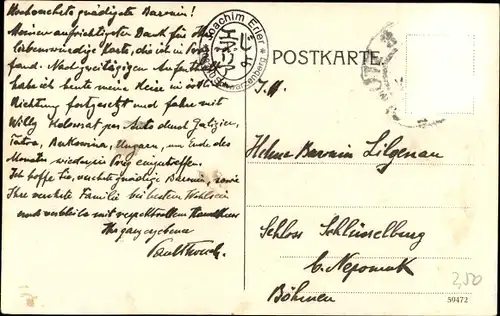 Hochverehrte gnädigste Baronin!
Meinen aufrichtigsten Dank für Ihre
liebenswürdige Karte, die ich in Prag vor-
fand. Nach zweitägigem Aufenthalt
habe ich heute meine Reise in östl.
Richtung fortgesetzt und fahre mit
Willy Kolowrat per Auto durch Galizien,
Tatra, Bukowina, Ungarn, um Ende des
Monats wieder in Prag einzutreffen.
Ich hoffe Sie, verehrte gnädige Baronin, sowie
Ihre verehrte Familie bei bestem Wohlsein
und verbleibe mit respektvollem Handkuss
Ihr ganz ergebener
Joachim Erler
Schwarzenberg
POSTKARTE.
I. H.
Helene Baronin Lilgenau
Schloss Schlüsselburg
b. Nepomuk
Böhmen
2,50
59472